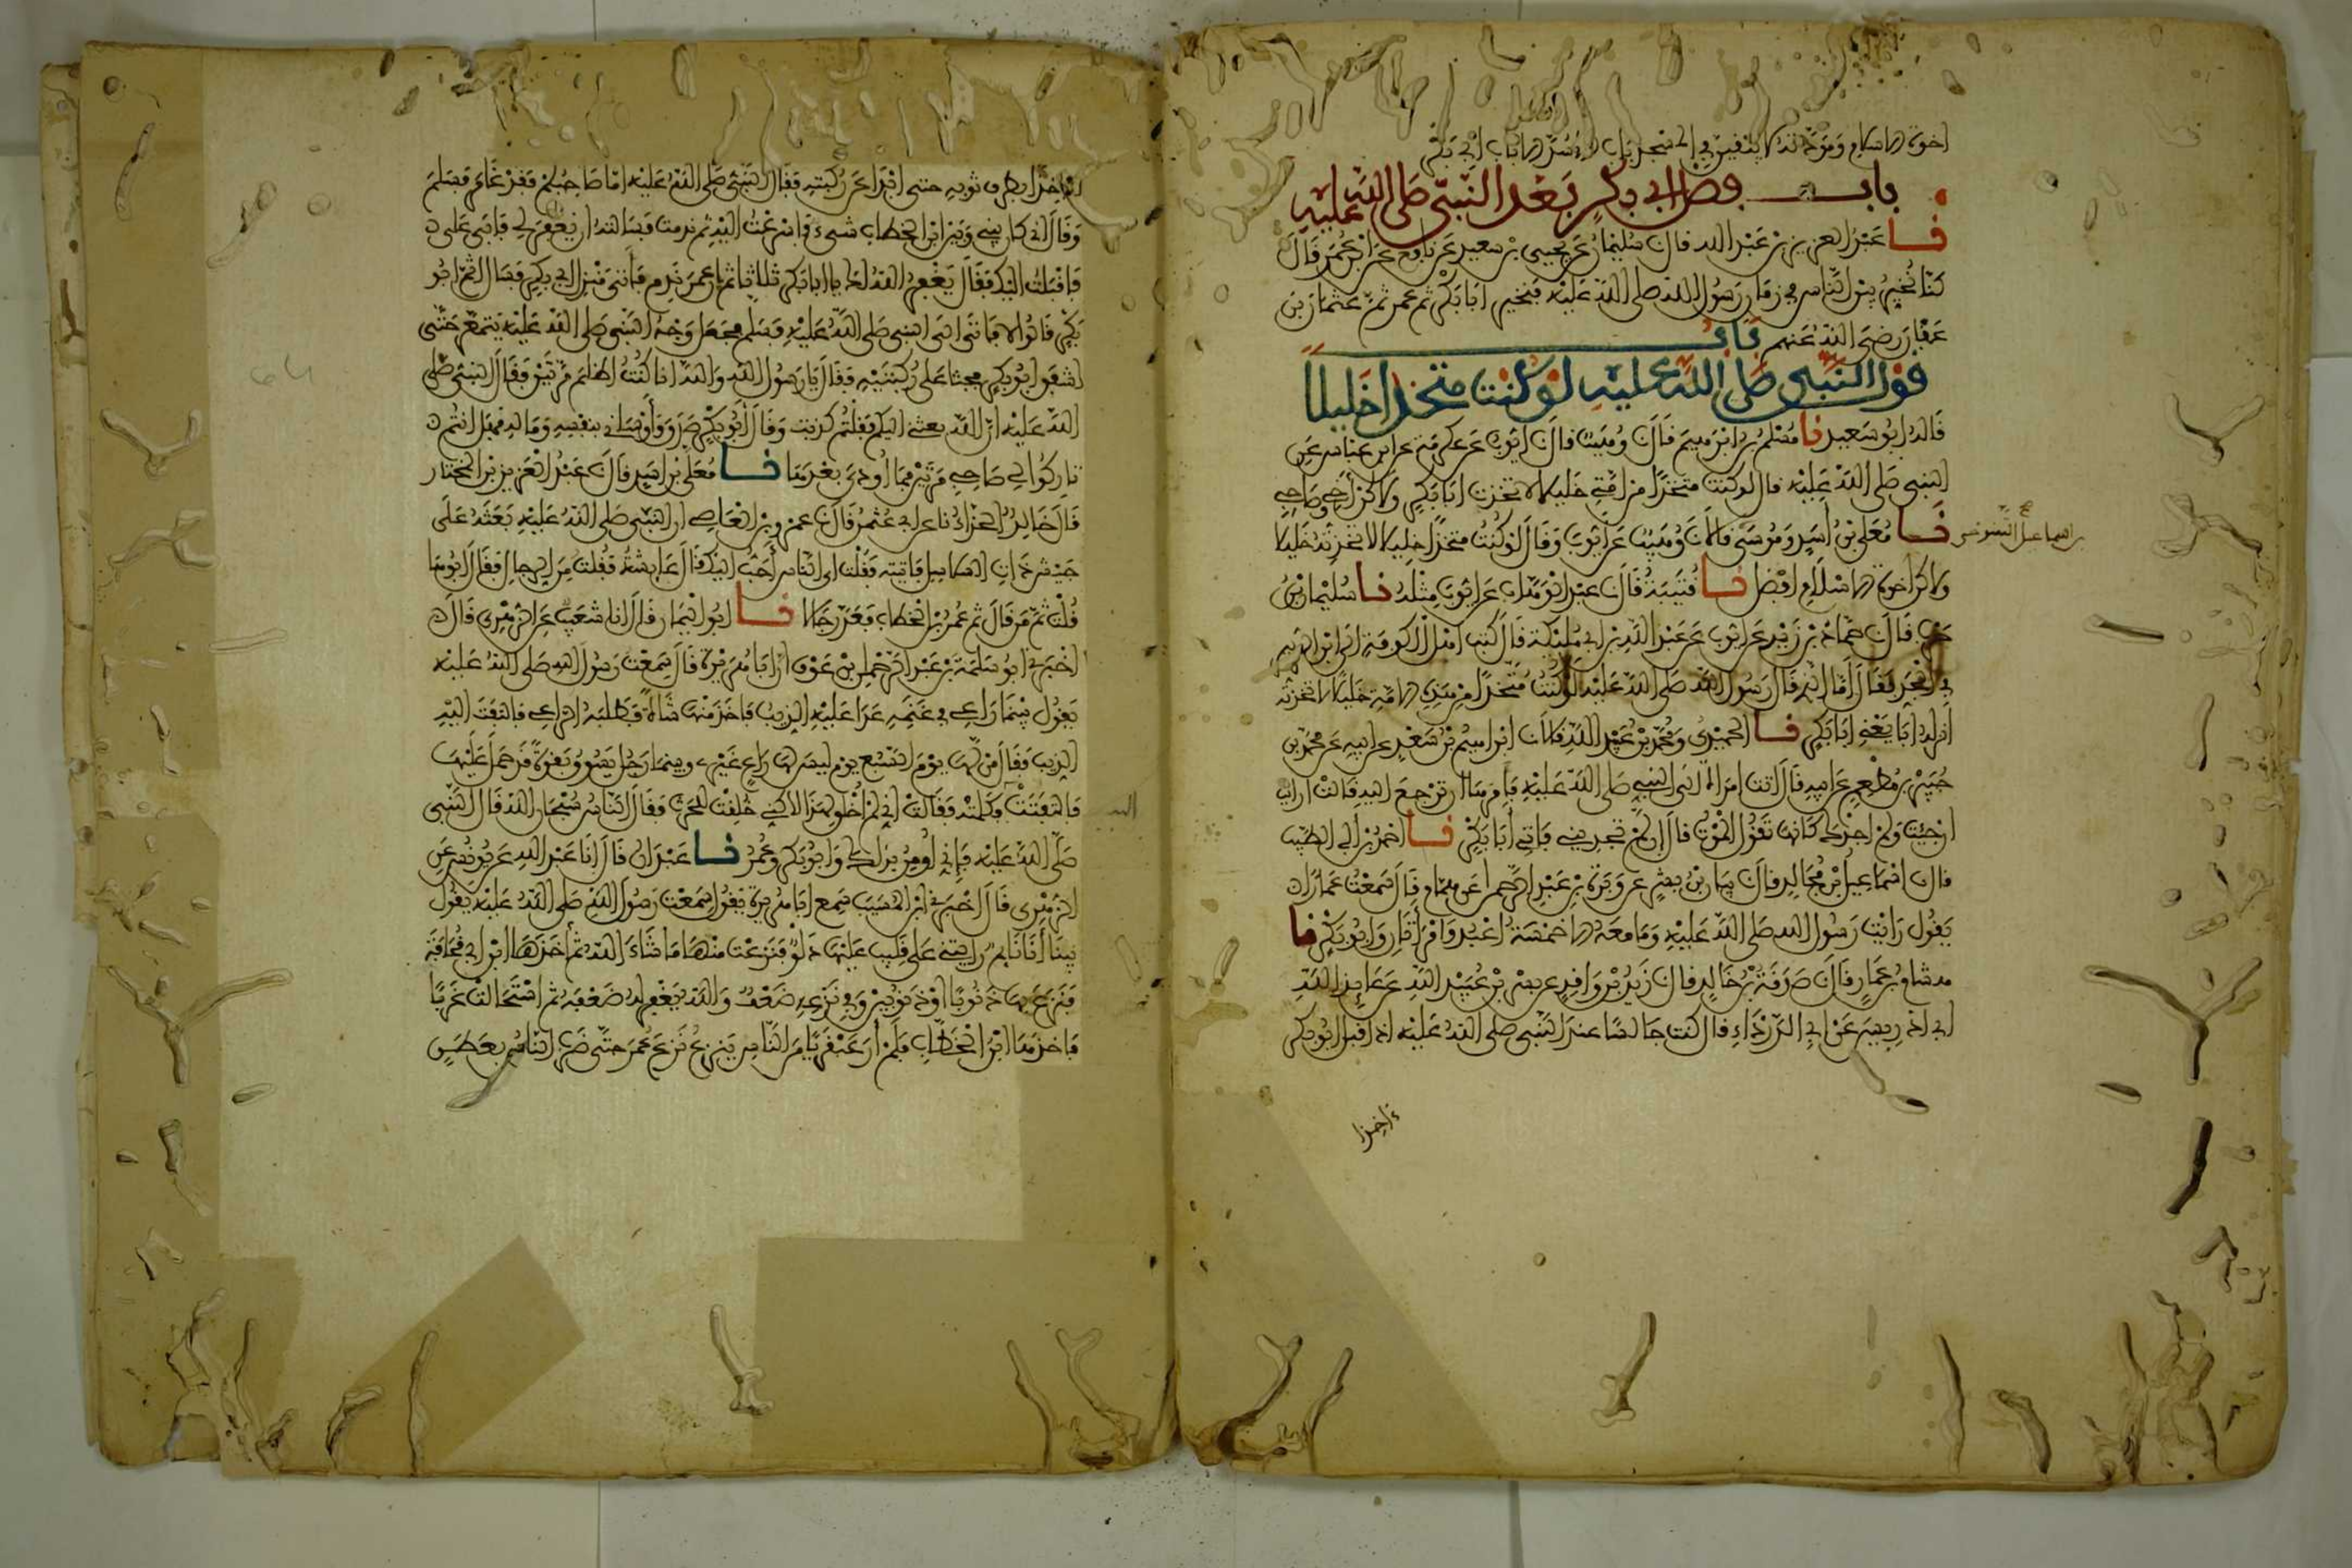 اخوة الاسلام ومودته لا يبقين في المسجد باب الا سد الا باب ابي بكر
باب فضل ابي بكر بعد النبي صلى الله عليه
نا عبد العزيز بن عبد الله قال نا سليمان عن يحيى بن سعيد عن نافع عن ابن عمر قال
كنا نخير بين الناس في زمان رسول الله صلى الله عليه فنخير ابا بكر ثم عمر ثم عثمان بن
عفان رضي الله عنهم باب
قول النبي صلى الله عليه لو كنت متخذا خليلا
قاله ابو سعيد نا مسلم بن ابرهيم قال نا وهيب قال نا ايوب عن عكرمة عن ابن عباس عن
النبي صلى الله عليه قال لو كنت متخذا من امتي خليلا لاتخذت ابا بكر ولاكن اخي وصاحبي
نا معلى بن اسد وموسى قالا نا وهيب عن ايوب وقال لو كنت متخذا خليلا لاتخذته خليلا
ولاكن اخوة الاسلام افضل نا قتيبة قال نا عبد الوهاب عن ايوب مثله نا سليمان بن
حرب قال نا حماد بن زيد عن ايوب عن عبد الله بن ابي مليكة قال كتب اهل الكوفة الى ابن الزبير
في الجد فقال اما الذي قال رسول الله صلى الله عليه لو كنت متخذا من هذه الامة خليلا لاتخذته
انزله ابا يعني ابا بكر نا الحميدي ومحمد بن عبيد الله قالا نا ابراهيم بن سعد عن ابيه عن محمد بن
جبير بن مطعم عن ابيه قال اتت امراة الى النبي صلى الله عليه فامرها ان ترجع اليه قالت ارايت
ان جئت ولم اجدك كانها تقول الموت قال ان لم تجديني فاتي ابا بكر نا احمد بن ابي الطيب
قال نا اسماعيل بن مجالد قال نا بيان بن بشر عن وبرة بن عبد الرحمن عن همام قال سمعت عمارا
يقول رايت رسول الله صلى الله عليه وما معه الا خمسة اعبد وامراتان وابو بكر نا
هشام بن عمار قال نا صدقة بن خالد قال نا زيد بن واقد عن بسر بن عبيد الله عن عايذ الله
ابي ادريس عن ابي الدرداء قال كنت جالسا عند النبي صلى الله عليه اذ اقبل ابو بكر
ءاخذا
ءاخذا بطرف ثوبه حتى ابدا عن ركبته فقال النبي صلى الله عليه اما صاحبكم فقد غامر فسلم
وقال اني كان بيني وبين ابن الخطاب شيء فاسرعت اليه ثم ندمت فسالته ان يغفر لي فابى علي
فاقبلت اليك فقال يغفر الله لك يا ابا بكر ثلاثا ثم ان عمر ندم فاتى منزل ابي بكر فسال اثم ابو
بكر قالوا لا فاتى الى النبي صلى الله عليه فسلم فجعل وجه النبي صلى الله عليه يتمعر حتى
اشفق ابو بكر فجثا على ركبتيه فقال يا رسول الله والله انا كنت اظلم مرتين فقال النبي صلى
الله عليه ان الله بعثني اليكم فقلتم كذبت وقال ابو بكر صدق وواساني بنفسه وماله فهل انتم
تاركوا لي صاحبي مرتين فما اوذي بعدها نا معلى بن اسد قال نا عبد العزيز بن المختار
قال خالد الحذاء نا عن ابي عثمن قال نا عمرو بن العاصي ان النبي صلى الله عليه بعثه على
جيش ذات السلاسل فاتيته فقلت اي الناس احب اليك قال عايشة فقلت من الرجال فقال ابوها
قلت ثم من قال ثم عمر بن الخطاب فعد رجالا نا ابو اليمان قال انا شعيب عن الزهري قال
اخبرني ابو سلمة بن عبد الرحمن بن عوف ان ابا هريرة قال سمعت رسول الله صلى الله عليه
يقول بينما راعي في غنمه عدا عليه الذيب فاخذ منها شاة فطلبه الراعي فالتفت اليه
الذيب فقال من لها يوم السبع يوم ليس لها راع غيري وبينما رجل يسوق بقرة قد حمل عليها
فالتفتت فكلمته فقالت اني لم اخلق لهذا لاكني خلقت للحرث فقال الناس سبحان الله قال النبي
صلى الله عليه فاني اومن بذلك وابو بكر وعمر نا عبدان قال انا عبد الله عن يونس عن
الزهري قال اخبرني ابن المسيب سمع ابا هريرة يقول سمعت رسول الله صلى الله عليه يقول
بينا انا نايم رايتني على قليب عليها دلو فنزعت منها ما شاء الله ثم اخذها ابن ابي قحافة
فنزع بها ذنوبا او ذنوبين وفي نزعه ضعف والله يغفر له ضعفه ثم استحالت غربا
فاخذها ابن الخطاب فلم ار عبقريا من الناس ينزع نزع عمر حتى ضرب الناس بعطن